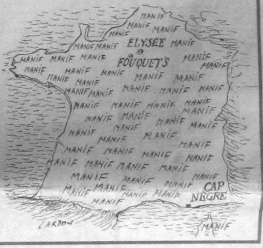 MANIF
MANIF MANIF
MANIF MANIF ELYSÉE MANIF
MANIF MANIF MANIF @ MANIF
MANIF MANIF MANIF FOUQUET'S MANIF
MANIF MANIF MANIF MANIF MANIF
MANIF MANIF MANIF MANIF
MANIF MANIF MANIF MANIF
MANIF MANIF MANIF MANIF
MANIF MANIF MANIF MANIF
MANIF MANIF MANIF
MANIF MANIF MANIF MANIF
MANIF MANIF MANIF MANIF
MANIF MANIF MANIF MANIF
MANIF MANIF MANIF MANIF CAP
MANIF MANIF MANIF MANIF NÈGRE
CARDON MANIF